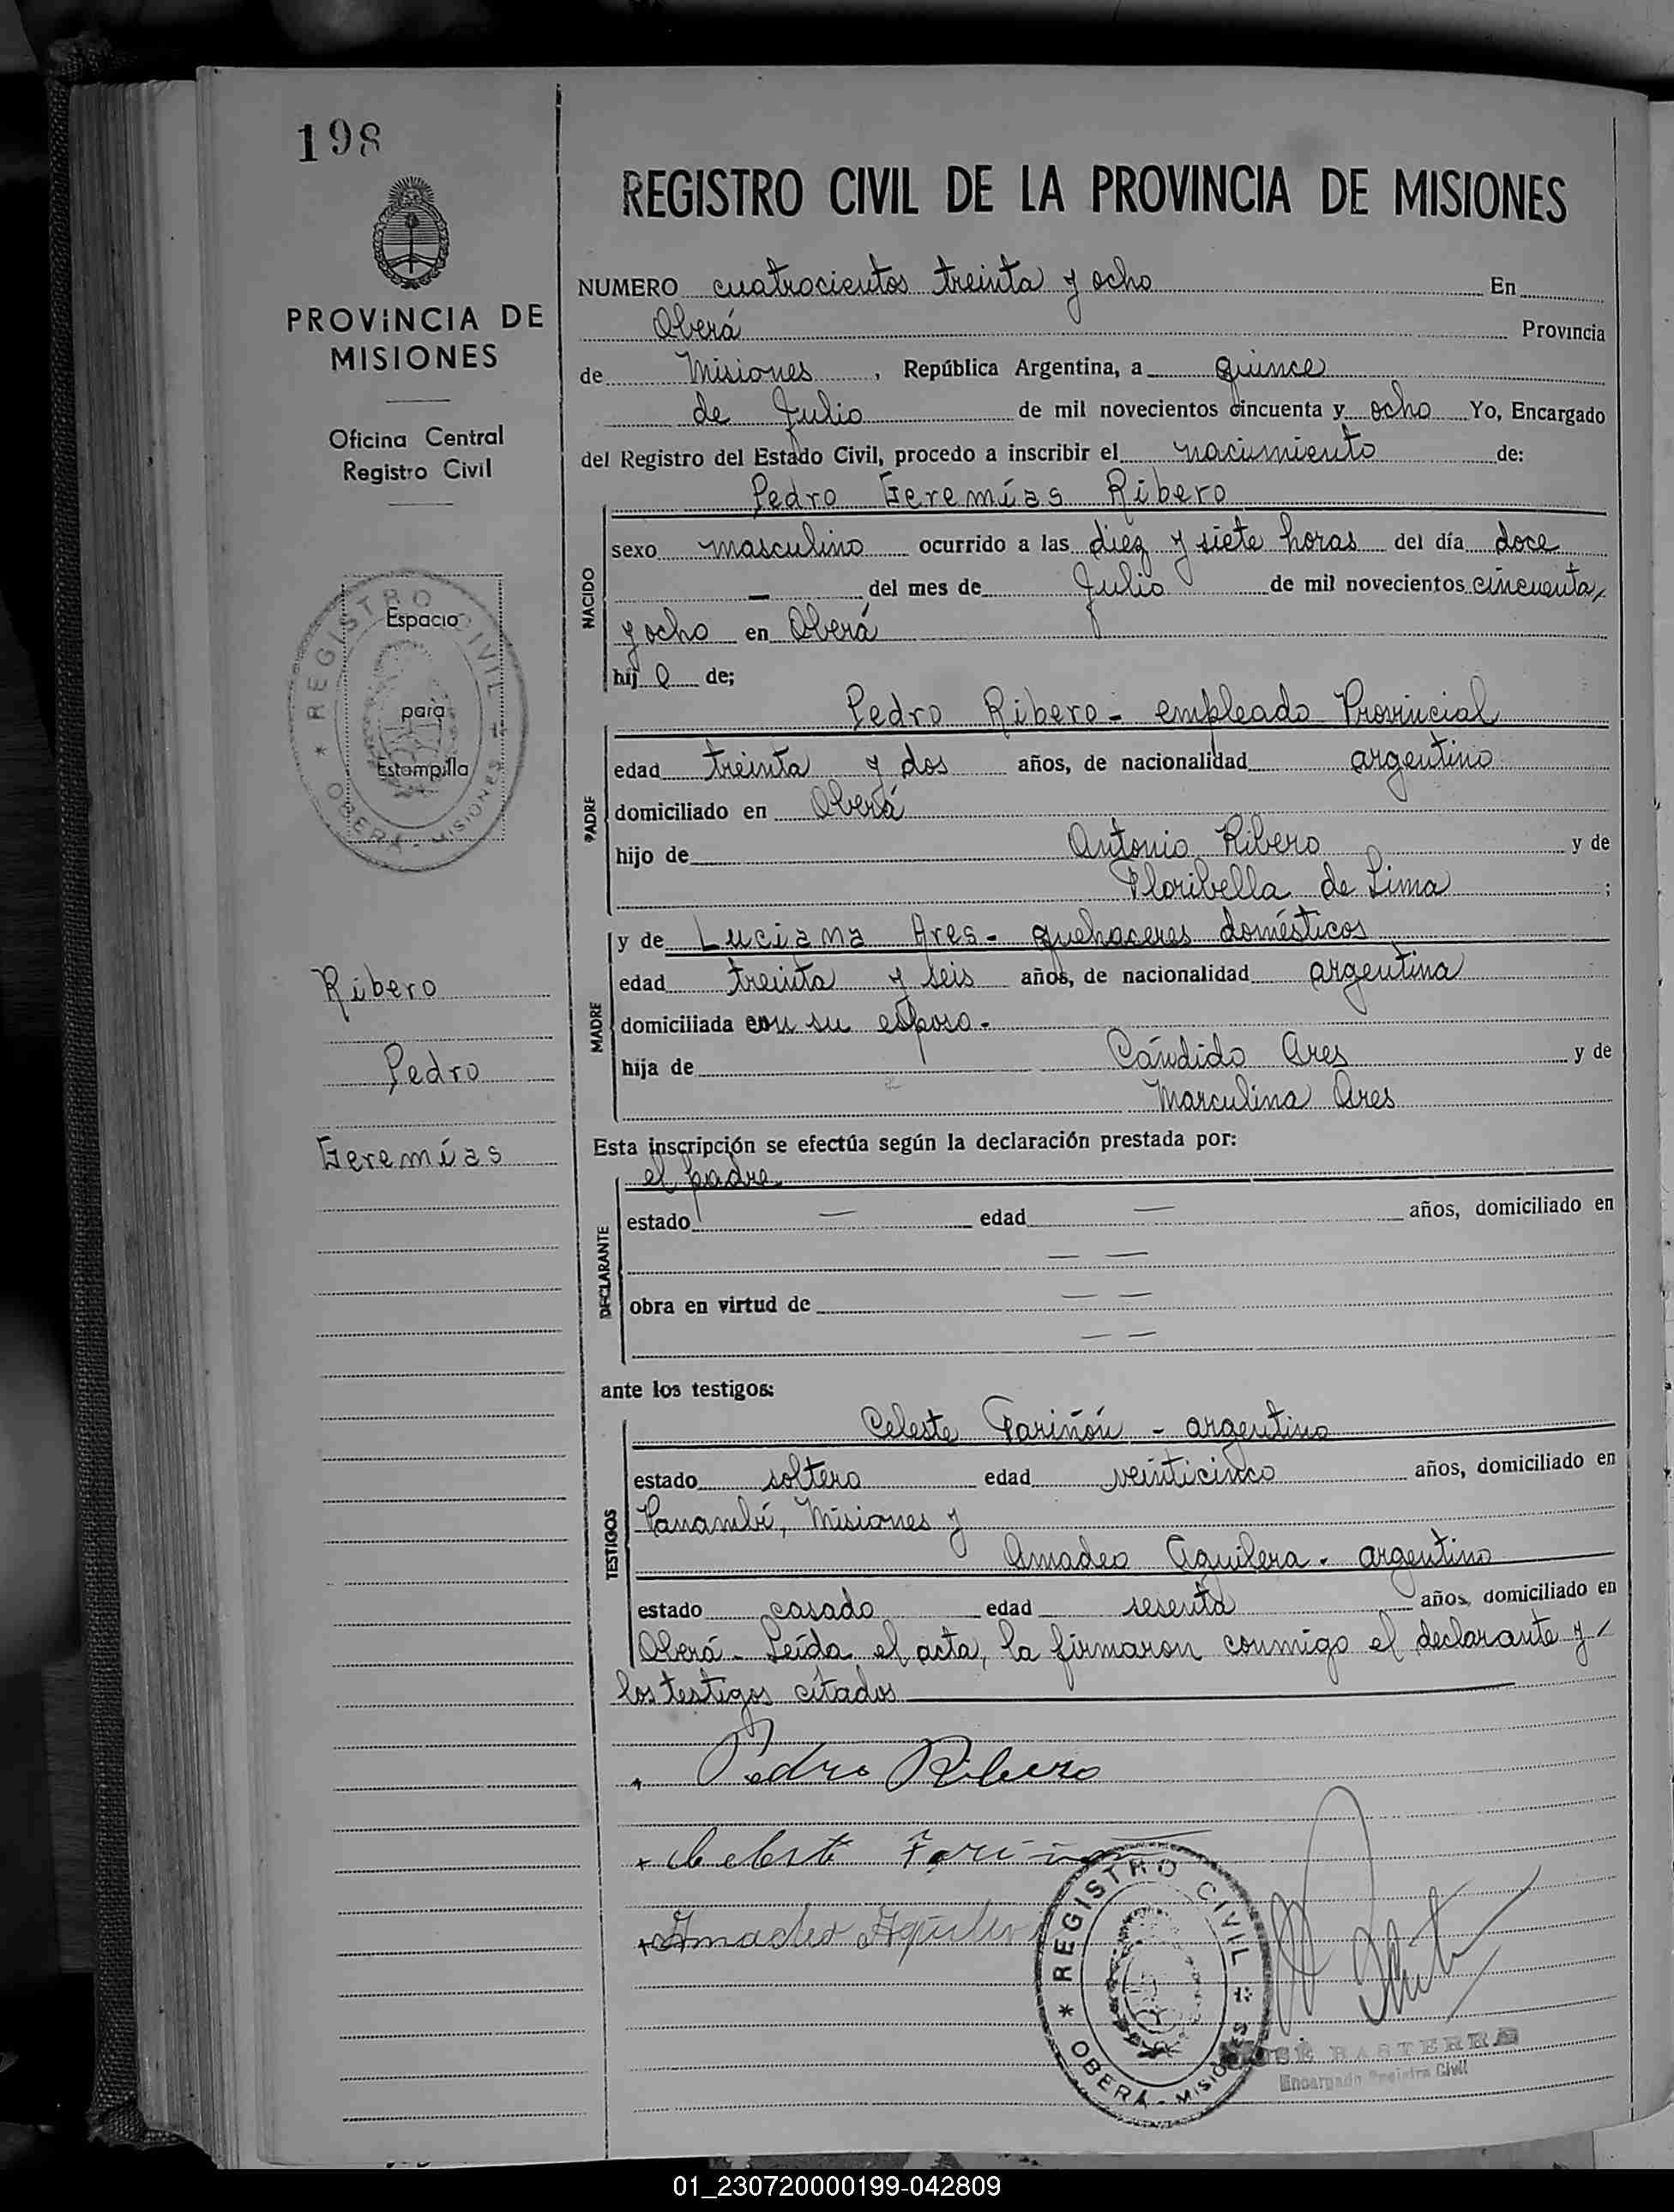 198
PROVINCIA DE
MISIONES
Oficina Central
Registro Civil
REGISTRO CIVIL
Espacio
para
Estampilla
OBERÁ - MISIONES
Ribero
Pedro
Geremías
REGISTRO CIVIL DE LA PROVINCIA DE MISIONES
NUMERO cuatrocientos treinta y ocho En
Oberá Provincia
de Misiones, República Argentina, a quince
de Julio de mil novecientos cincuenta y ocho Yo, Encargado
del Registro del Estado Civil, procedo a inscribir el nacimiento de:
Pedro Geremías Ribero
NACIDO
sexo masculino ocurrido a las diez y siete horas del día doce
— del mes de Julio de mil novecientos cincuenta
y ocho en Oberá
hij o de;
Pedro Ribero - empleado Provincial
PADRE
edad treinta y dos años, de nacionalidad argentino
domiciliado en Oberá
hijo de Antonio Ribero y de
Floribella de Lima ;
MADRE
y de Luciana Ares - quehaceres domésticos
edad treinta y seis años, de nacionalidad argentina
domiciliada con su esposo.-
hija de Cándido Ares y de
Marculina Ares
Esta inscripción se efectúa según la declaración prestada por:
el padre
DECLARANTE
estado — edad — años, domiciliado en
— —
obra en virtud de — —
— —
ante los testigos:
TESTIGOS
Celeste Fariñón - argentino
estado soltero edad veinticinco años, domiciliado en
Panambí, Misiones y
Amadeo Aguilera - argentino
estado casado edad sesenta años, domiciliado en
Oberá - Leída el acta, la firmaron conmigo el declarante y
los testigos citados
Pedro Ribero
Celeste
Amadeo
REGISTRO CIVIL
OBERÁ - MISIONES
BASTERRA
Encargado Registro Civil
01_230720000199-042809